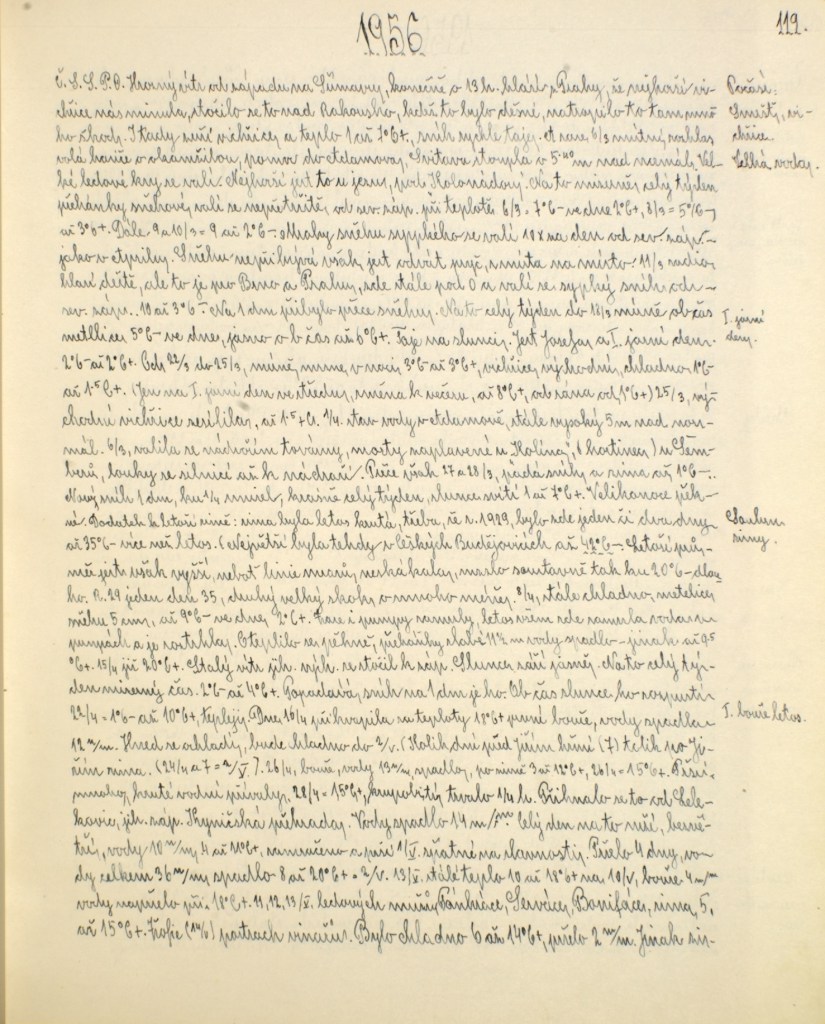 1956
119.
č. S. S. P. O. Hrozný vítr od západu na Šumavu, konečně o 13 h. hlásí z Prahy, že nejhorší vi-
chřice nás minula, stočilo se to nad Rakousko, kdež to bylo děsné, natropilo to tam mno
ho škody. I tady zuří vichřice, a teplo 1 až 7°C+, sníh rychle taje. A ráno 6/3 rozhlas
volá o pomoc do Adamova, Svitava stoupla o 5.40 m nad normál. Vel-
ké ledové kry se valí. Nejhorší jest to u jesu, pod Kolonádou. Na to celý týden
přeháňky sněhové, valí se nepřetržitě, od sev. záp. při teplotě 6/3 = 7°C- ve dne 2°C+, 8/3 = 5°C-,
až 3°C+. Dále 9 a 10/3 = 9 až 2°C-. Mraky sněhu sypkého se valí 10x za den od sev. záp.-
jako v aprilu. Sněhu nepřibývá však, jest odvát pryč, z místa na místo. 11/3 radio
hlásí déště, ale to je pro Brno a Prahu, zde stále pod 0 a valí se sypký sníh od-
sev. záp. 10 až 3°C-. Na 1 dm přibylo přece sněhu. Na to celý týden do 18/3 mírně občas
metllice, 5°C- ve dne, jasno a občas až 6°C+. Taje na slunci. Jest Josefa, a I. jarní den.
2°C- až 2°C+. Od 22/3 do 25/3, mírně, v noci, 3°C- až 3°C+, vichřice, východní, chladno 1°C-
až 1.5°C+. (Jen na I. jarní den ve středu, změna k večeru, až 8°C+, od rána od 1°C+) 25/3, vý-
chodní vichřice zesílila, až 1.5+C. 1/4 stav vody v Adamově, stále vysoký 5 m nad nor-
mál. 6/3, valila se nádvořím továrny, mosty zaplavené u "Kolína", (hostinec) u Šem-
berů, louky se silnicí až k nádraží. Píše však 27 a 28/3, padá sníh, a zima až 1°C-.
Nový sníh 1 dm, ku 1/4 zmizel, krásně celý týden, slunce svítí 1 až 7°C+. Velikonoce pěk-
né. Dodatek k letoší zimě: zima byla letos krutá, třeba, že r. 1929, bylo zde jeden či dva dny
až 35°C- více než letos. (Největší byla tehdy v Českých Budějovicích až 42°C-. Letoší prů-
měr jest však vyšší, neboť linie mrazů, neskákala, nýbrž soustavně tak ku 20°C- dlou
ho. R. 29 jeden den 35, druhý velký skok, o mnoho méně. 8/4, stále chladno, metelice,
sněhu 5 cm, až 9°C- ve dne, 2°C+. Zase i pumpy zamrzly, letos všem zde zamrzla voda v
pumpách a je roztrhla. Oteplilo se, pěkně, přeháňky slabé 11 1/2 m vody spadlo - jinak až 9.5
°C+. 15/4 již 20°C+. Stálý vítr jih. vých. se stočil k záp. Slunce září jasně. Na to celý tý-
den mírný čas. 2°C- až 4°C+. Popadává, sníh na 1 dm je ho. Ob čas slunce ho rozpustí
22/4 = 1°C- až 10°C+, tepleji. Dne 16/4 přikvapila za teploty 18°C+ první bouře, vody spadlo-
12 m/m. Hned se ochladí, bude chladno do 2/V. (Kolik dní před Jiřím (7) tolik po Ji-
řím zima. (24/4 a 7 = 2/V.). 26/4, bouře, vody 13 m/m, spadlo, po zimě 3 až 12°C+, 26/4 = 15°C+. Přší
mnoho, kruté vodní přívaly. 28/4 = 15°C+, krupobití, trvalo 1/4 h. Přihnalo se to od Lele-
kovic, jih. záp. Kyničská přehrada. Vody spadlo 14 m/m. Celý den na to mží,
vody 10 m/m, 4 až 11°C+, zamračeno a prší 1/V. špatně na slavnosti. Pršelo 4 dny, vo-
dy celkem 36 m/m, spadlo 8 až 20°C+ = 2/V. 13/V. stále teplo 10 až 18°C+ na 10/V, bouře 4 m/m
vody napršelo při 18°C+. 11, 12, 13/V. ledových mužů, Pankrace, Servác, Bonifác, zima, 5,
až 15°C+. Žofie (14/V) postrach vinařů. Bylo chladno 6 až 14°C+, pršelo 2 m/m. Jinak
Počasí:
Smršť, vi-
chřice.
Velká voda.
I. jarní
den.
Souhrn
zimy.
I. bouře letos.